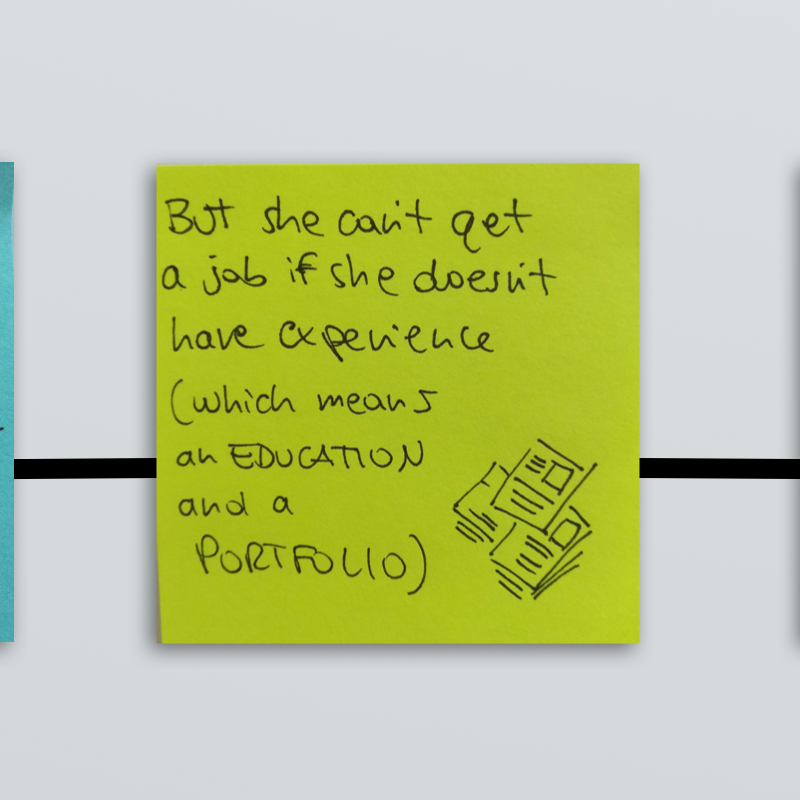 But she can't get
a job if she doesn't
have experience
(which means
an EDUCATION
and a
PORTFOLIO)